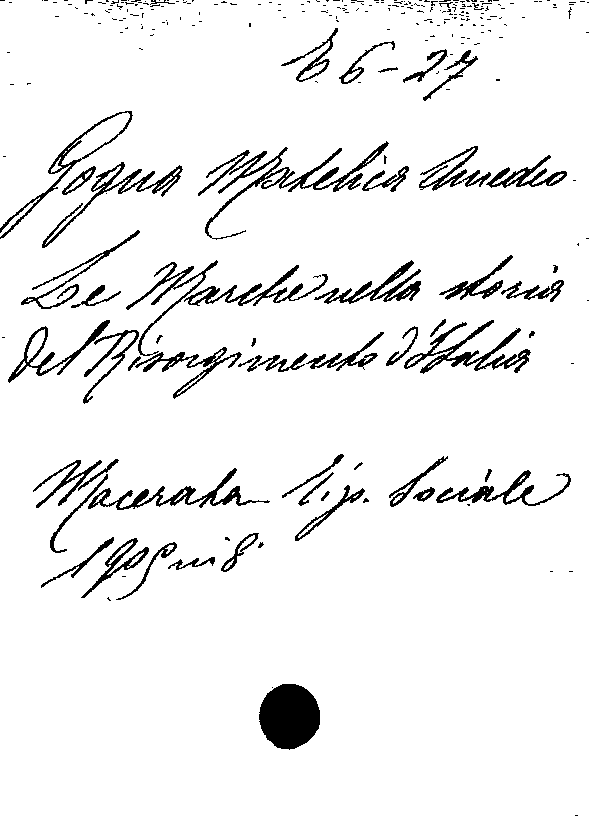 E 6-27
Gogna Matelica Amedeo
Le Marche nella storia
del Risorgimento d'Italia
Macerata Tip. Sociale
1905 in 8°